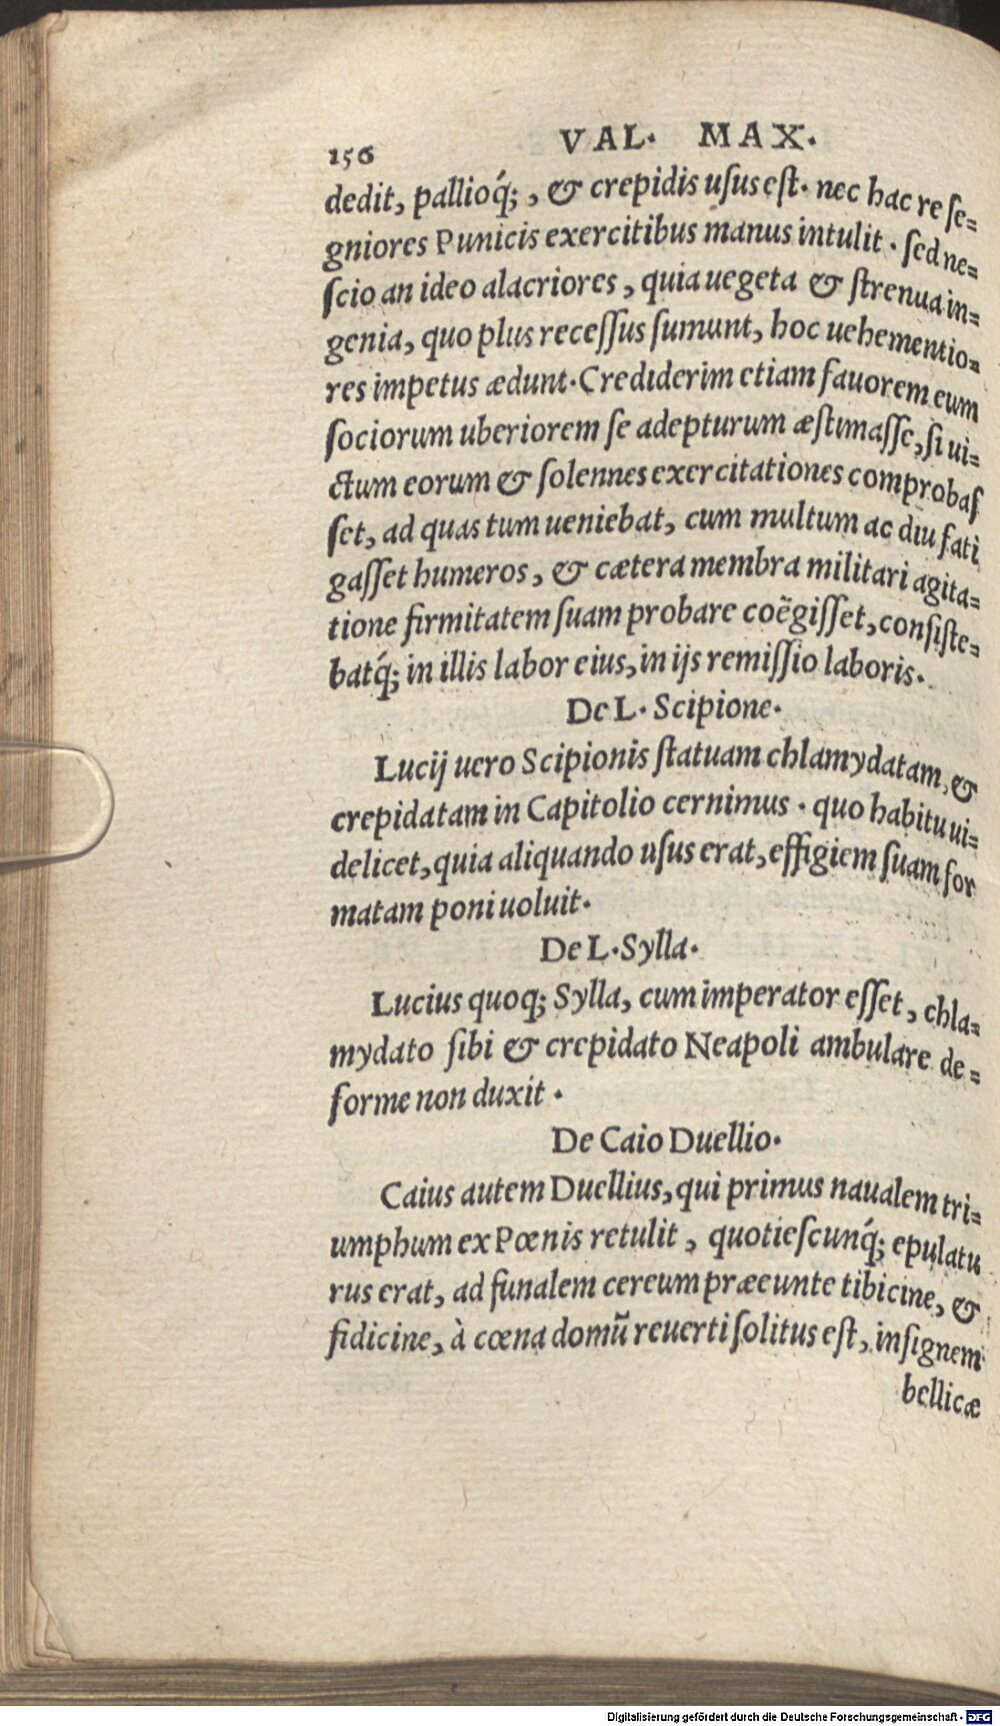 156 VAL. MAX.
dedit, pallioq́;, & crepidis uſus eſt. nec hac re ſe=
gniores Punicis exercitibus manus intulit. ſed ne=
ſcio an ideo alacriores, quia uegeta & ſtrenua in=
genia, quo plus receſſus ſumunt, hoc uehementio=
res impetus ædunt. Crediderim etiam fauorem eum
ſociorum uberiorem ſe adepturum æſtimaſſe, ſi ui=
ctum eorum & ſolennes exercitationes comprobaſ
ſet, ad quas tum ueniebat, cum multum ac diu fati
gaſſet humeros, & cætera membra militari agita=
tione firmitatem ſuam probare coëgiſſet, conſiſte=
batq́; in illis labor eius, in ijs remiſſio laboris.
De L. Scipione.
Lucij uero Scipionis ſtatuam chlamydatam, &
crepidatam in Capitolio cernimus. quo habitu ui=
delicet, quia aliquando uſus erat, effigiem ſuam for
matam poni uoluit.
De L. Sylla.
Lucius quoq; Sylla, cum imperator eſſet, chla=
mydato ſibi & crepidato Neapoli ambulare de=
forme non duxit.
De Caio Duellio.
Caius autem Duellius, qui primus naualem tri=
umphum ex Pœnis retulit, quotieſcunq́; epulatu
rus erat, ad funalem cereum præeunte tibicine, &
fidicine, à cœna domũ reuerti ſolitus eſt, inſignem
bellicæ
Digitalisierung gefördert durch die Deutsche Forschungsgemeinschaft - DFG